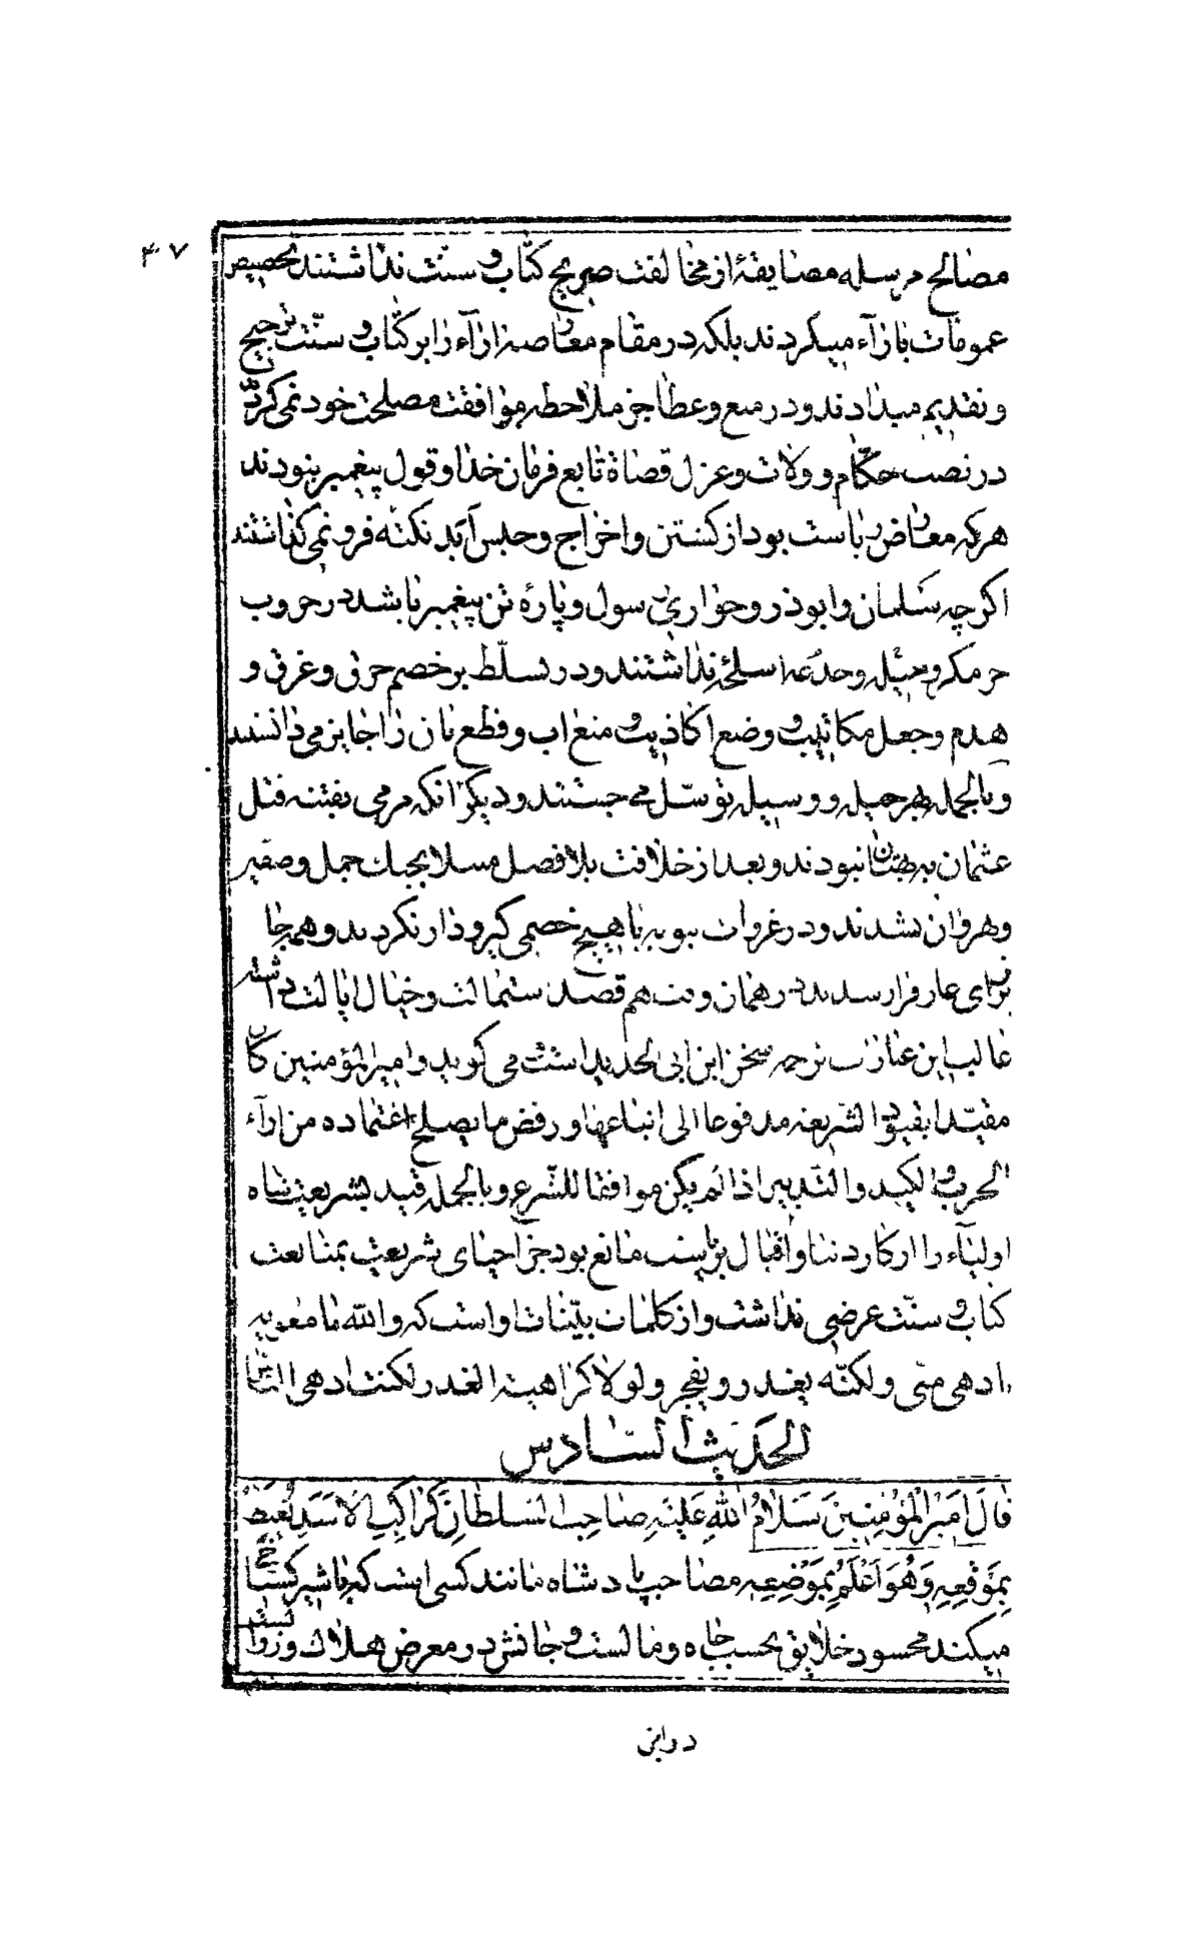 ۳۰۷
مصالح مرسله مضایقهٔ از مخالفت صریح کتاب و سنت نداشتند تخصیص
عمومات باراء میکردند بلکه در مقام معارضه اراء را بر کتاب و سنّت ترجیح
و تقدیم میدادند و در منع و عطا جز ملاحظه موافقت مصلحت خود نمی‌کردند
در نصب حکّام و ولات و عزل قضاة تابع فرمان خدا و قول پیغمبر نبودند
هرکه معارض ریاست بود از کشتن و اخراج و حبس ابد نکته فرو نمی‌گذاشتند
اگرچه سلمان و ابوذر و حواری رسول و پارهٔ تن پیغمبر باشد در حروب
جز مکر و حیل و خدعه اسلحه نداشتند و در تسلّط بر خصم حرق و غرق و
هدم و جعل مکاتیب و وضع اکاذیب و منع اب و قطع نان را جایز می‌دانستند
و بالجمله بهر حیله و وسیله توسّل می‌جستند و دیگر انکه مرمی بفتنه قتل
عثمان به بهتان نبودند و بعد از خلافت بلافصل مبتلا بجنک جمل و صفین
و نهروان نشدند و در غزوات نبویه با هیچ خصمی گیرودار نکردند و همه‌جا
برای عار فرار در همان وقت هم قصد استمالت و خیال ایالت داشتند
غالب این عبارت ترجمه سخن ابن ابی الحدید است می‌گوید و امیرالمؤمنین کان
مقیّدا بقیود الشریعه مدفوعا الی اتباعها و رفض ما یصلح اعتماده من اراء
الحرب و الکید و التدبیر اذا لم یکن موافقا للشّرع و بالجمله قید شریعت شاه
اولیاء را از کار دنیا و اقبال بریاست مانع بود جز احیای شریعت بمتابعت
کتاب و سنّت غرضی نداشت و از کلمات بیّنات اواست که والله ما معویه
ادهی منّی و لکنّه یغدر و یفجر و لولا کراهیة الغدر لکنت ادهی النّاس
الحدیث السادس
قَالَ اَمیرُ الْمُؤْمِنینَ سَلامُ اللهِ عَلَیْهِ صَاحِبُ السُّلطانِ کَراکِبِ الاَسَدِ یُغبَطُ
بِمَوقِعِهِ وَ هُوَ اَعْلَمُ بِمَوْضِعِهِ مصاحب پادشاه مانند کسی است که با شیر
میکند محسود خلایق بحسب جاه و مالست و جانش در معرض هلاک و زوال است
در این